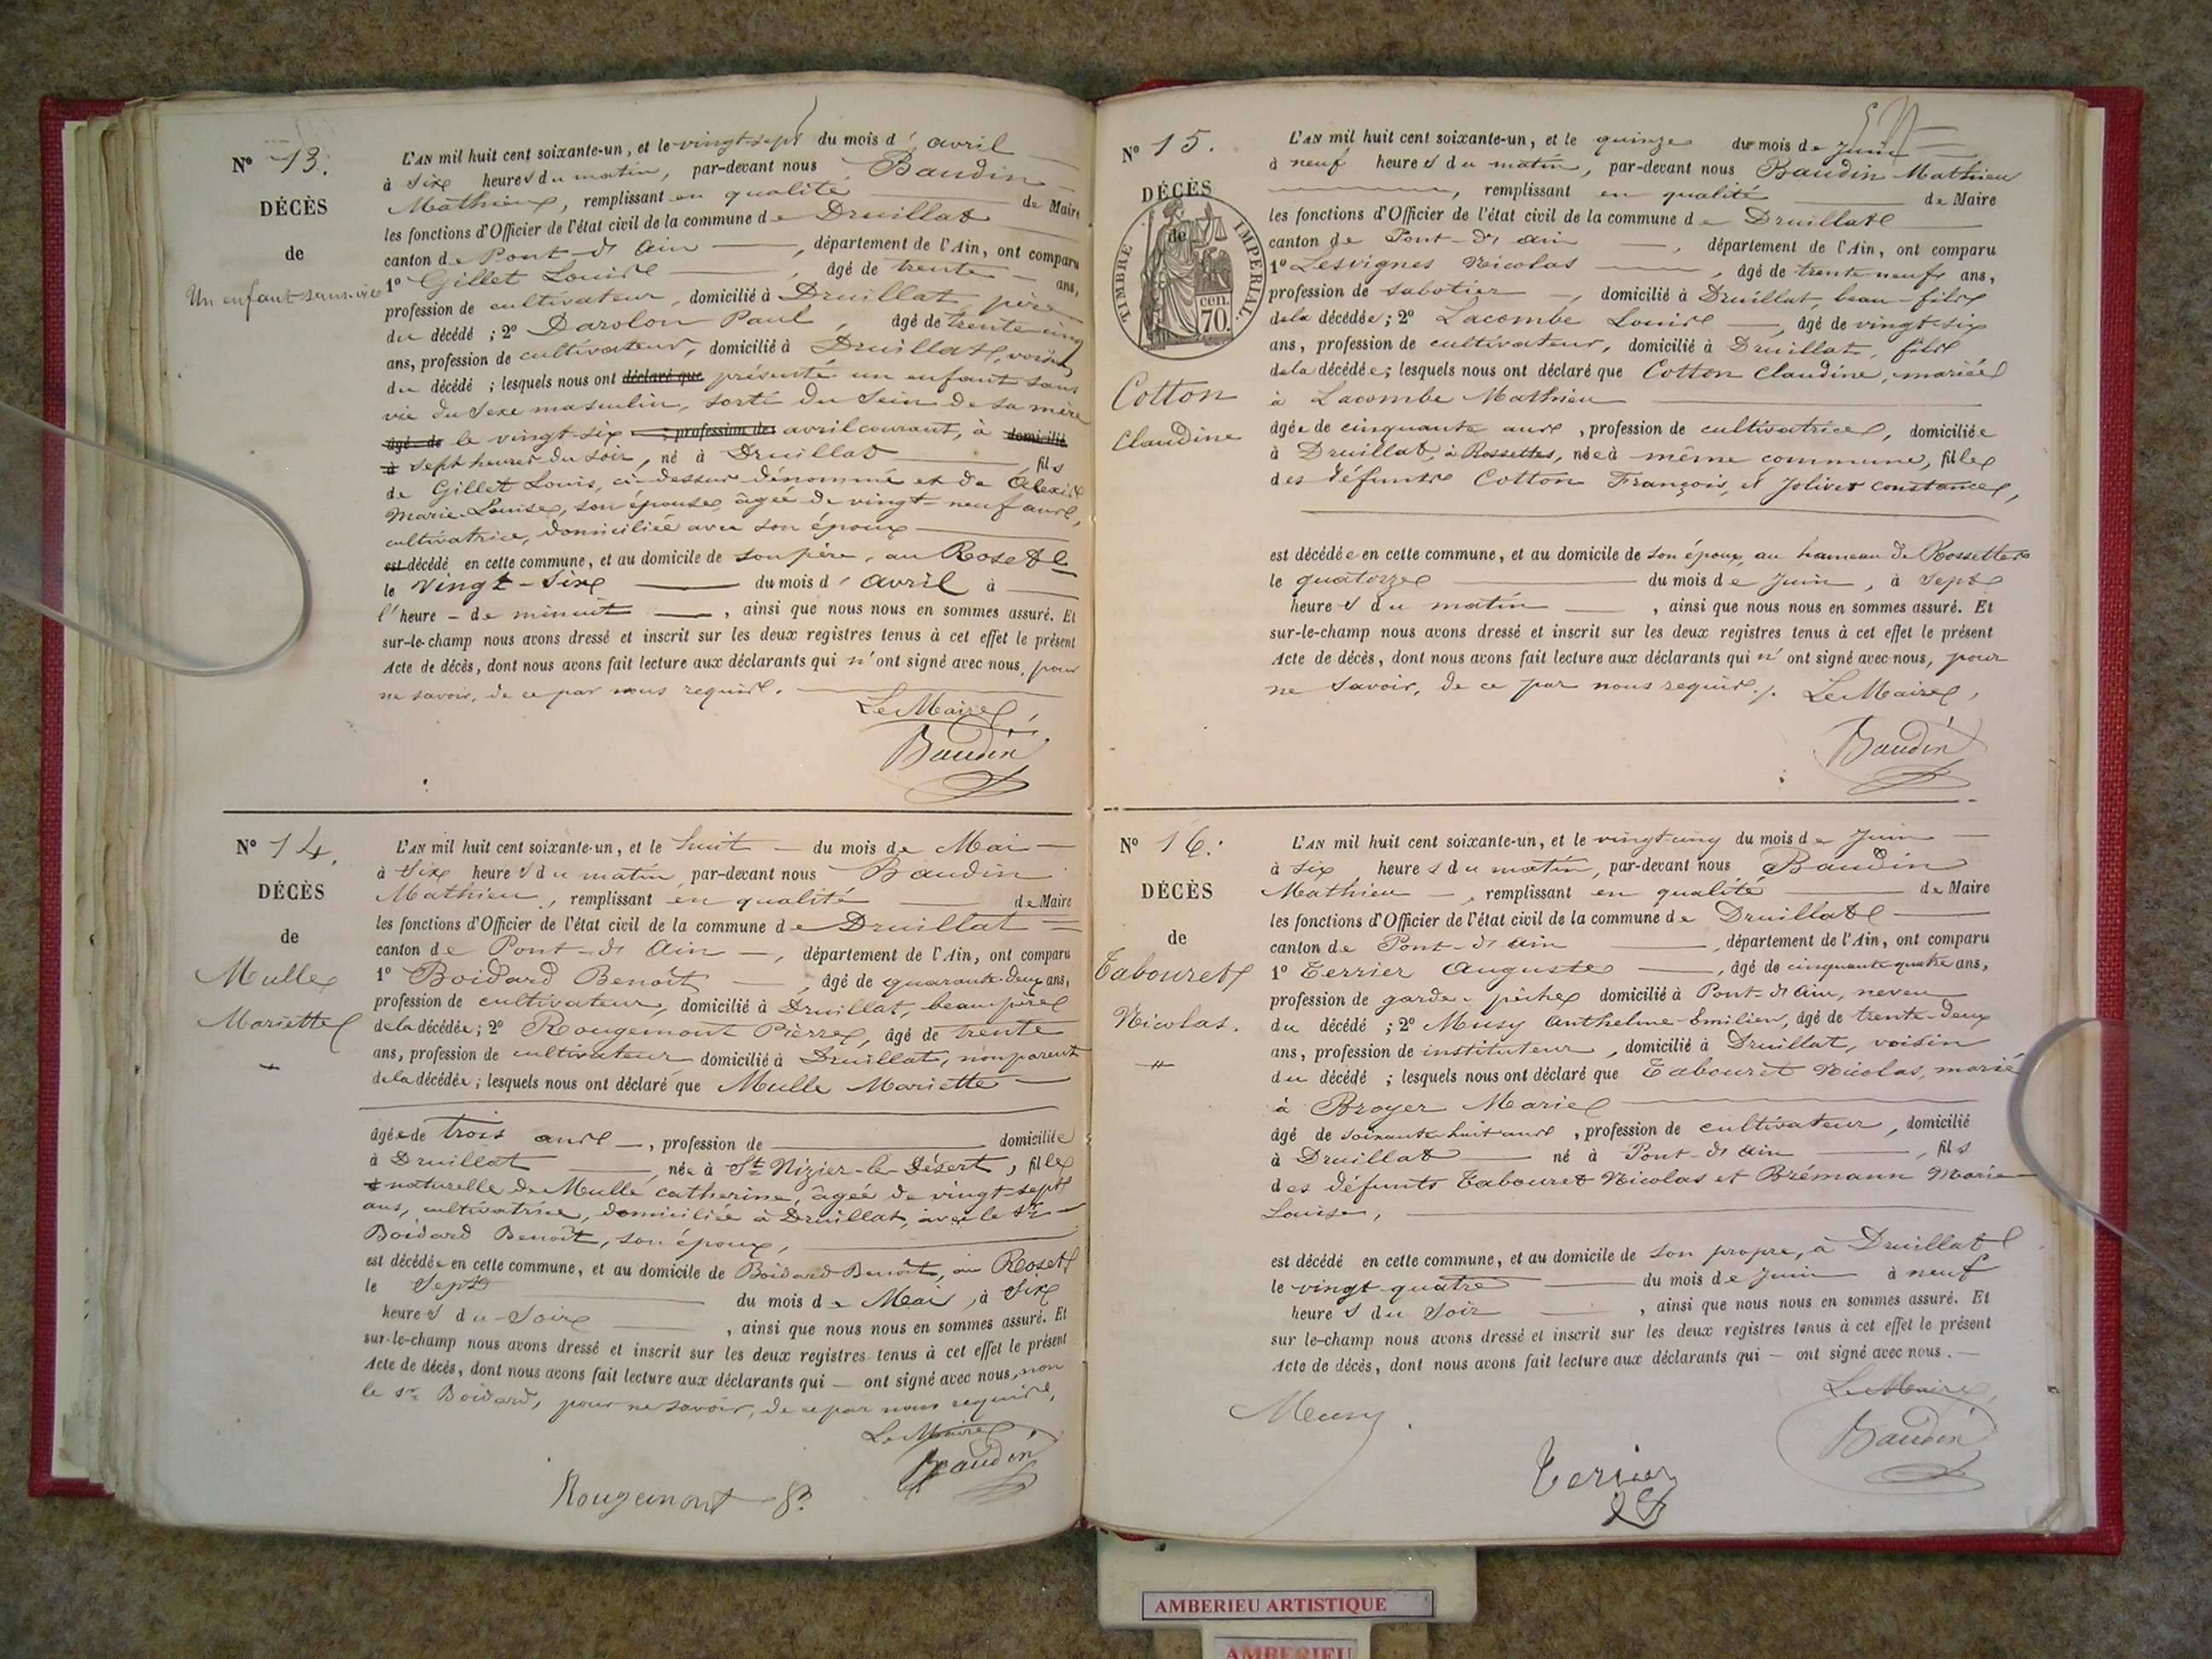 N° 13.
DÉCÈS
de
Un enfant sans vie
L'AN mil huit cent soixante-un, et le vingt-sept du mois d'avril
à six heures du matin, par-devant nous Baudin
Mathieu, remplissant en qualité de Maire
les fonctions d'Officier de l'état civil de la commune de Druillat
canton de Pont-d'Ain, département de l'Ain, ont comparu
1° Gillet Louis, âgé de trente ans,
profession de cultivateur, domicilié à Druillat, père
du décédé ; 2° Darolon Paul, âgé de trente cinq
ans, profession de cultivateur, domicilié à Druillat, voisin
du décédé ; lesquels nous ont déclaré que présenté un enfant sans
vie du sexe masculin, sorti du sein de sa mère
âgé de le vingt-six ; profession de avril courant, à domicilié
à sept heures du soir, né à Druillat fils
de Gillet Louis, ci-dessus dénommé et de Alexis
Marie-Louise, son épouse, âgée de vingt-neuf ans,
cultivatrice, domiciliée avec son époux
est décédé en cette commune, et au domicile de son père, au Roset
le vingt-six du mois d'avril à
l'heure de minuit, ainsi que nous nous en sommes assuré. Et
sur-le-champ nous avons dressé et inscrit sur les deux registres tenus à cet effet le présent
Acte de décès, dont nous avons fait lecture aux déclarants qui n'ont signé avec nous, pour
ne savoir, de ce par nous requis.
Le Maire,
Baudin
N° 14.
DÉCÈS
de
Mulle
Mariette
L'AN mil huit cent soixante-un, et le huit du mois de Mai
à six heures du matin, par-devant nous Baudin
Mathieu, remplissant en qualité de Maire
les fonctions d'Officier de l'état civil de la commune de Druillat
canton de Pont-d'Ain, département de l'Ain, ont comparu
1° Boidard Benoît, âgé de quarante-deux ans,
profession de cultivateur, domicilié à Druillat, beau-père
de la décédée ; 2° Rougemont Pierre, âgé de trente
ans, profession de cultivateur domicilié à Druillat, non parent
de la décédée ; lesquels nous ont déclaré que Mulle Mariette
âgée de trois ans, profession de domiciliée
à Druillat, née à St Nizier-le-Désert, fille
naturelle de Mulle Catherine, âgée de vingt-sept
ans, cultivatrice, domiciliée à Druillat, avec le Sr
Boidard Benoît, son époux,
est décédée en cette commune, et au domicile de Boidard Benoît, au Roset
le sept du mois de Mai, à six
heures du soir, ainsi que nous nous en sommes assuré. Et
sur-le-champ nous avons dressé et inscrit sur les deux registres tenus à cet effet le présent
Acte de décès, dont nous avons fait lecture aux déclarants qui ont signé avec nous, non
le Sr Boidard, pour ne savoir, de ce par nous requis,
Le Maire
Baudin
Rougemont P.
N° 15.
DÉCÈS
de
TIMBRE IMPERIAL
70 cen.
Cotton
Claudine
L'AN mil huit cent soixante-un, et le quinze du mois de Juin
à neuf heures du matin, par-devant nous Baudin Mathieu
, remplissant en qualité de Maire
les fonctions d'Officier de l'état civil de la commune de Druillat
canton de Pont-d'ain, département de l'Ain, ont comparu
1° Lesvignes Nicolas, âgé de trente neuf ans,
profession de sabotier, domicilié à Druillat, beau-fils
de la décédée ; 2° Lacombe Louis, âgé de vingt six
ans, profession de cultivateur, domicilié à Druillat, fils
de la décédée ; lesquels nous ont déclaré que Cotton Claudine, mariée
à Lacombe Mathieu
âgée de cinquante ans, profession de cultivatrice, domiciliée
à Druillat, à Rossettes, née à même commune, fille
des défunts Cotton François, et Jolivet Constance,
est décédée en cette commune, et au domicile de son époux, au hameau de Rossettes
le quatorze du mois de Juin, à sept
heures du matin, ainsi que nous nous en sommes assuré. Et
sur-le-champ nous avons dressé et inscrit sur les deux registres tenus à cet effet le présent
Acte de décès, dont nous avons fait lecture aux déclarants qui n'ont signé avec nous, pour
ne savoir, de ce par nous requis. Le Maire,
Baudin
N° 16.
DÉCÈS
de
Tabouret
Nicolas.
L'AN mil huit cent soixante-un, et le vingt-cinq du mois de Juin
à six heures du matin, par-devant nous Baudin
Mathieu, remplissant en qualité de Maire
les fonctions d'Officier de l'état civil de la commune de Druillat
canton de Pont-d'ain, département de l'Ain, ont comparu
1° Terrier Auguste, âgé de cinquante-quatre ans,
profession de garde-pêche domicilié à Pont-d'Ain, neveu
du décédé ; 2° Musy Anthelme-Emilien, âgé de trente-deux
ans, profession de instituteur, domicilié à Druillat, voisin
du décédé ; lesquels nous ont déclaré que Tabouret Nicolas, marié
à Broyer Marie
âgé de soixante-huit ans, profession de cultivateur, domicilié
à Druillat né à Pont-d'ain, fils
des défunts Tabouret Nicolas et Brémann Marie
Louise,
est décédé en cette commune, et au domicile de son propre, à Druillat
le vingt quatre du mois de Juin à neuf
heures du soir, ainsi que nous nous en sommes assuré. Et
sur le-champ nous avons dressé et inscrit sur les deux registres tenus à cet effet le présent
Acte de décès, dont nous avons fait lecture aux déclarants qui ont signé avec nous.
Le Maire,
Musy.
Baudin
Terrier
AMBERIEU ARTISTIQUE
AMBERIEU